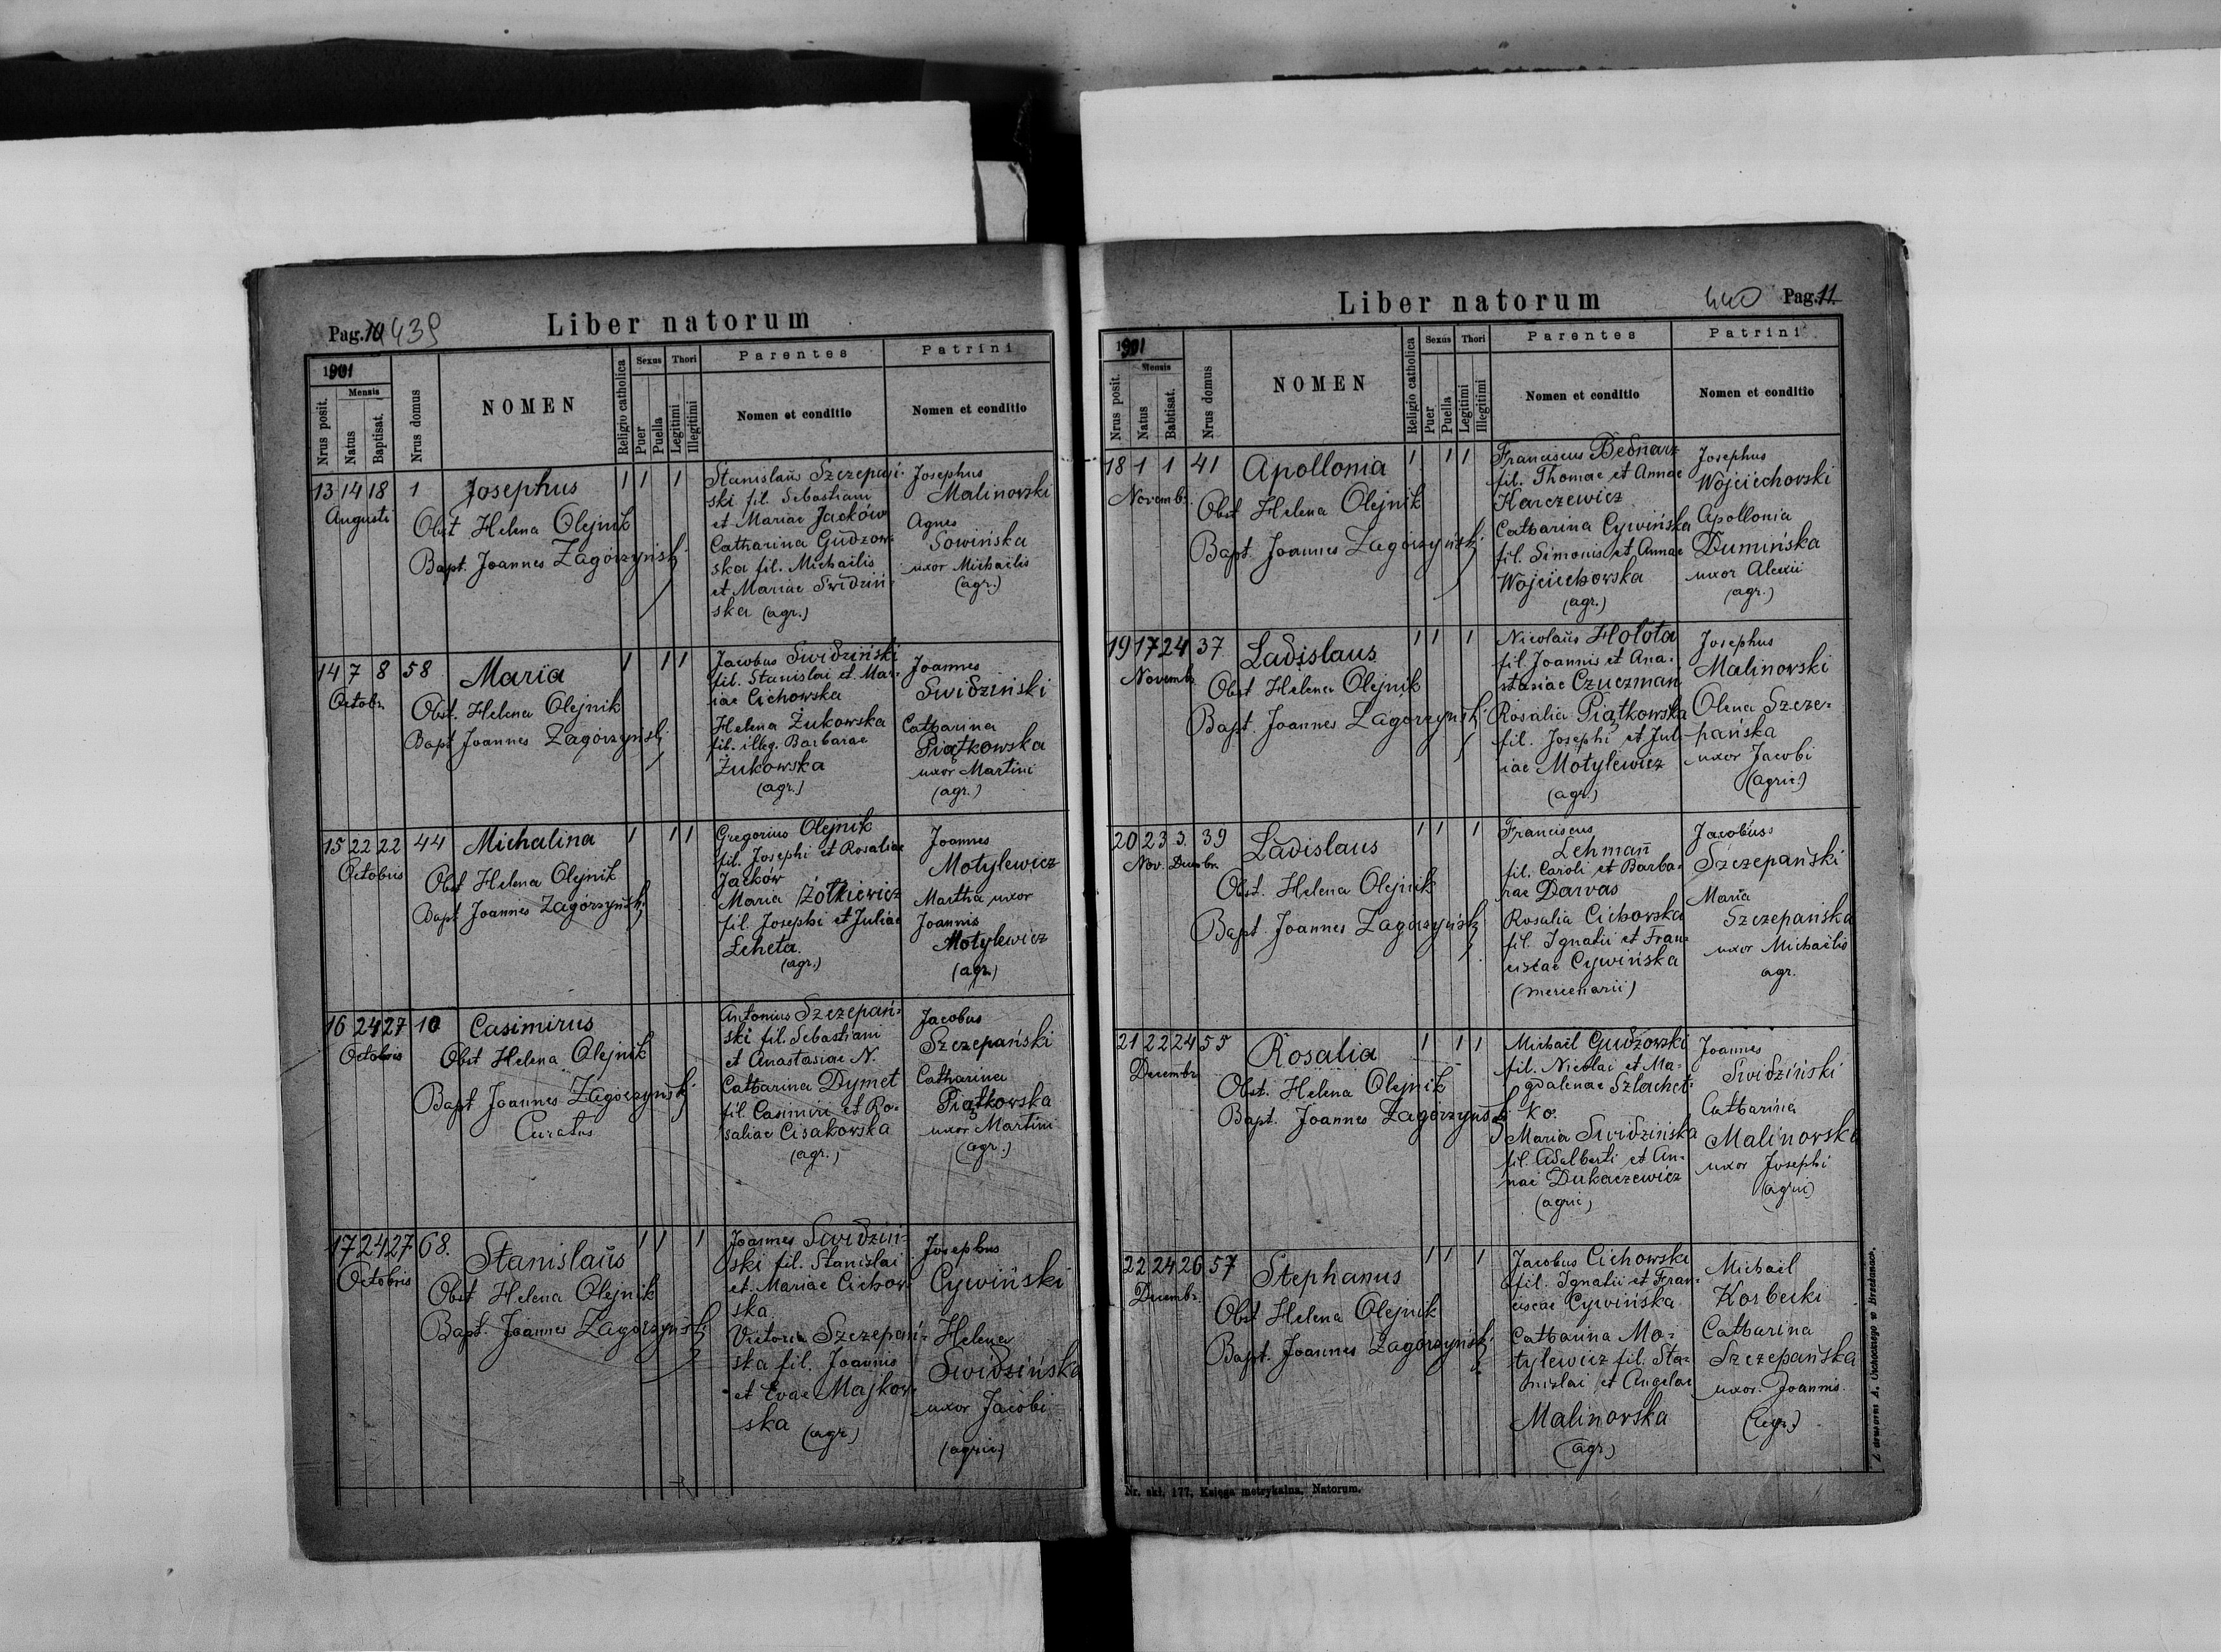 Pag. 10 439
Liber natorum
1901
Nrus posit.
Mensis
Natus
Baptisat.
Nrus domus
NOMEN
Religio catholica
Sexus
Puer
Puella
Thori
Legitimi
Illegitimi
Parentes
Nomen et conditio
Patrini
Nomen et conditio
13 14 18 1 Josephus 1 1 1
Augusti
Obst Helena Olejnik
Bapt. Joannes Zagórzyński
Stanislaus Szczepań-
ski fil. Sebastiani
et Mariae Jacków
Catharina Gudzow-
ska fil. Michaelis
et Mariae Swidziń-
ska (agr.)
Josephus
Malinowski
Agnes
Sowińska
uxor Michaelis
(agr.)
14 7 8 58 Maria 1 1 1
Octobr.
Obst. Helena Olejnik
Bapt Joannes Zagórzyński
Jacobus Swidziński
fil. Stanislai et Mar-
iae Cichowska
Helena Żukowska
fil. illeg. Barbarae
Żukowska
(agr.)
Joannes
Swidziński
Catharina
Piątkowska
uxor Martini
(agr.)
15 22 22 44 Michalina 1 1 1
Octobris
Obst Helena Olejnik
Bapt Joannes Zagórzyński
Gregorius Olejnik
fil. Josephi et Rosaliae
Jacków
Maria Żółkiewicz
fil. Josephi et Juliae
Łeheta.
(agr.)
Joannes
Motylewicz
Martha uxor
Joannis
Motylewicz
(agr.)
16 24 27 10 Casimirus
Octobris
Obst Helena Olejnik
Bapt Joannes Zagórzyński
Curatus
Antonius Szczepań-
ski fil. Sebastiani
et Anastasiae N.
Catharina Dymet
fil Casimiri et Ro-
saliae Cisakowska
(agr.)
Jacobus
Szczepański
Catharina
Piątkowska
uxor Martini
(agr.)
17 24 27 68. Stanislaus 1 1 1
Octobris
Obst Helena Olejnik
Bapt. Joannes Zagórzyński
Joannes Swidziń-
ski fil. Stanislai
et Mariae Cichow-
ska
Victoria Szczepań-
ska fil. Joannis
et Evae Majkow-
ska (agr)
Josephus
Cywiński
Helena
Swidzińska
uxor Jacobi
(agric)
Liber natorum
440 Pag. 11
1901
Nrus posit.
Mensis
Natus
Babtisat.
Nrus domus
NOMEN
Religio catholica
Sexus
Puer
Puella
Thori
Legitimi
Illegitimi
Parentes
Nomen et conditio
Patrini
Nomen et conditio
18 1 1 41 Apollonia 1 1 1
Novemb.
Obst Helena Olejnik
Bapt. Joannes Zagórzyński
Franciscus Bednarz
fil. Thomae et Annae
Karczewicz
Catharina Cywińska
fil. Simonis et Annae
Wojciechowska
(agr.)
Josephus
Wojciechovski
Apollonia
Dumińska
uxor Alexii
(agr.)
19 17 24 37 Ladislaus 1 1 1
Novemb.
Obst Helena Olejnik
Bapt. Joannes Zagorzyński
Nicolaus Hołota
fil. Joannis et Ana-
stasiae Czuczman
Rosalia Piątkowska
fil. Josephi et Jul-
iae Motylewicz
(agr.)
Josephus
Malinowski
Olena Szcze-
pańska
uxor Jacobi
(agric.)
20 23 3. 39 Ladislaus 1 1 1
Nov. Decembr.
Obst. Helena Olejnik
Bapt. Joannes Zagórzyński
Franciscus
Lehman
fil. Caroli et Barba-
rae Darvas
Rosalia Cichowska
fil. Ignatii et Fran-
ciscae Cywińska
(mercenarii)
Jacobus
Szczepański
Maria
Szczepańska
uxor Michaelis
agr.
21 22 24 55 Rosalia 1 1 1
Decembr.
Obst. Helena Olejnik
Bapt. Joannes Zagórzyński
Michael Gudzowski
fil. Nicolai et Ma-
gdalenae Szlachet-
ko.
Maria Swidzińska
fil. Adalberti et An-
nae Dukaczewicz
(agric)
Joannes
Swidziński
Catharina
Malinovska
uxor Josephi
(agric)
22 24 26 57 Stephanus 1 1 1
Decembr.
Obst Helena Olejnik
Bapt. Joannes Zagórzyński
Jacobus Cichowski
fil. Ignatii et Fran-
ciscae Cywińska
Catharina Mo-
tylewicz fil. Sta-
nislai et Angelae
Malinovska
(agr)
Michael
Korbecki
Catharina
Szczepańska
uxor. Joannis.
(agr.)
Nr. skł. 177. Księga metrykalna. Natorum.